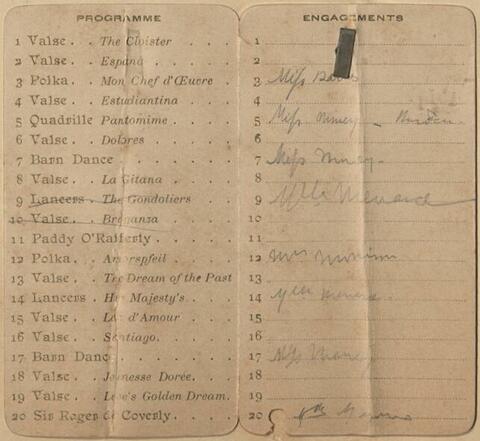 PROGRAMME
1 Valse . . The Cloister . . . .
2 Valse . . España . . . .
3 Polka . . Mon Chef d'Œuvre . .
4 Valse . . Estudiantina . . . .
5 Quadrille Pantomime . . . .
6 Valse . . Dolores . . . .
7 Barn Dance . . . . . .
8 Valse . . La Gitana . . . .
9 Lancers . The Gondoliers . . .
10 Valse . . Braganza . . . .
11 Paddy O'Rafferty . . . . .
12 Polka . . Amorspfeil . . . .
13 Valse . . The Dream of the Past
14 Lancers . Her Majesty's . . . .
15 Valse . . Lac d'Amour . . . .
16 Valse . . Santiago . . . .
17 Barn Dance . . . . . .
18 Valse . . Jeunesse Dorée . . .
19 Valse . . Love's Golden Dream .
20 Sir Roger de Coverly . . . .
ENGAGEMENTS
1
2
3 Miss
4
5 Miss
6
7 Miss
8
9
10
11
12 Mrs
13
14
15
16
17 Miss
18
19
20